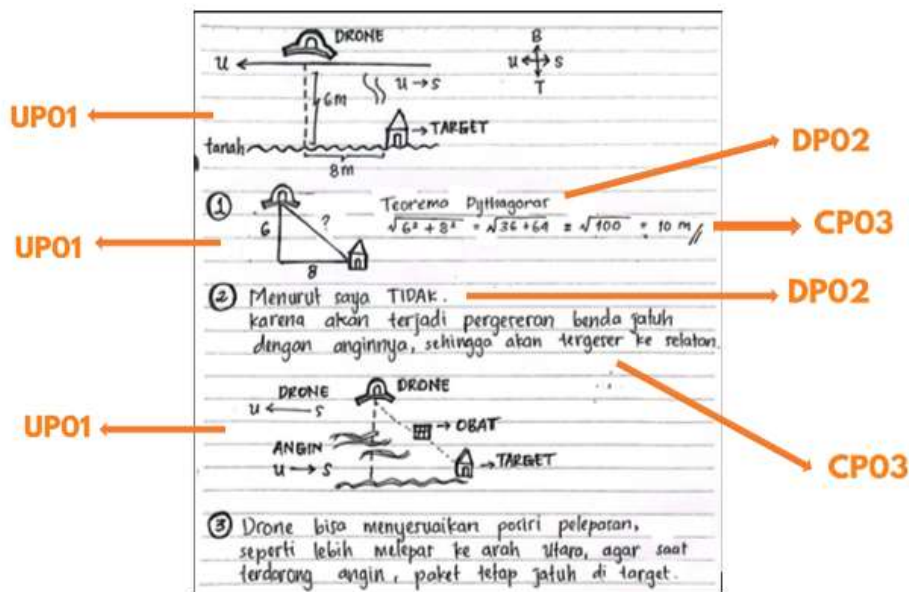 DRONE
B
U
U S
T
6m
U → S
UP01
→ TARGET
tanah
8m
DP02
①
Teorema Pythagoras
6
?
√6² + 8² = √36 + 64 = √100 = 10 m //
CP03
UP01
8
② Menurut saya TIDAK.
DP02
karena akan terjadi pergeseran benda jatuh
dengan anginnya, sehingga akan tergeser ke selatan.
DRONE
DRONE
U ← S
→ OBAT
UP01
ANGIN
U → S
→ TARGET
CP03
③ Drone bisa menyesuaikan posisi pelepasan,
seperti lebih melepas ke arah Utara, agar saat
terdorong angin, paket tetap jatuh di target.